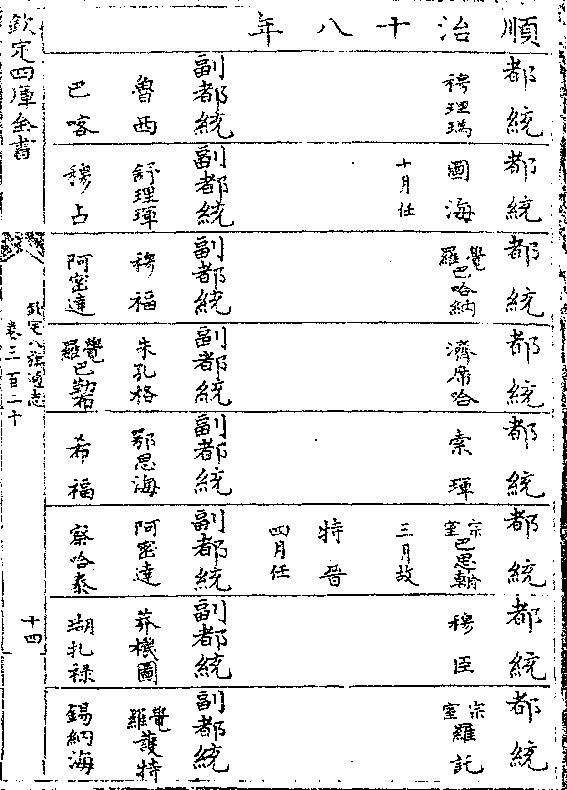 順治十八年
都統 都統 都統 都統 都統 都統 都統 都統
穆理瑪 圖海 覺羅巴哈納 濟席哈 索琿 宗室巴思翰 穆臣 宗室羅託
十月任 三月故
特晉
四月任
副都統 副都統 副都統 副都統 副都統 副都統 副都統 副都統
魯西 舒理琿 穆福 朱孔格 鄂思海 阿密達 莽機圖 覺羅護特
巴喀 穆占 阿密達 覺羅巴 希福 察哈泰 瑚扎祿 錫納海
欽定四庫全書
欽定八旗通志
卷三百二十
十四